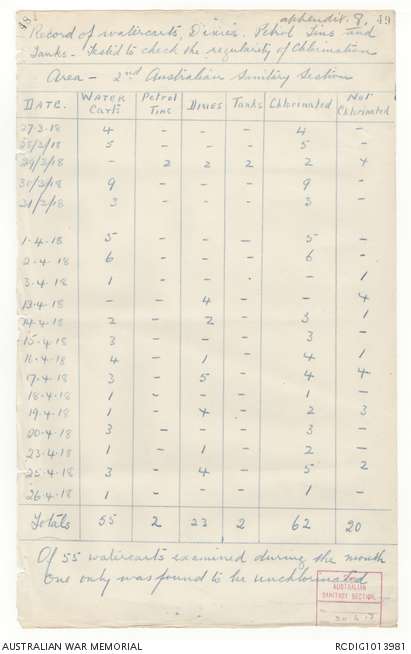 48
appendix 8. 49
Record of watercarts, Dixies. Petrol Tins and
Tanks - Tested to check the regularity of Chlorination
Area - 2nd Australian Sanitary Section
DATE. WATER Carts Petrol Tins DIXIES Tanks Chlorinated Not Chlorinated
27-3-18 4 - - - 4 -
28/3/18 5 - - - 5 -
29/3/18 - 2 2 2 2 4
30/3/18 9 - - - 9 -
31/3/18 3 - - - 3 -
1-4-18 5 - - - 5 -
2-4-18 6 - - - 6 -
3-4-18 1 - - - - 1
13-4-18 - - 4 - - 4
14-4-18 2 - 2 - 3 1
15-4-18 3 - - - 3 -
16-4-18 4 - 1 - 4 1
17-4-18 3 - 5 - 4 4
18-4-18 1 - - - 1 -
19-4-18 1 - 4 - 2 3
20-4-18 3 - - - 3 -
23-4-18 1 - 1 - 2 -
25-4-18 3 - 4 - 5 2
26-4-18 1 - - - 1 -
Totals 55 2 23 2 62 20
Of 55 watercarts examined during the month
one only was found to be unchlorinated
AUSTRALIAN
SANITARY SECTION
AUSTRALIAN WAR MEMORIAL RCDIG1013981